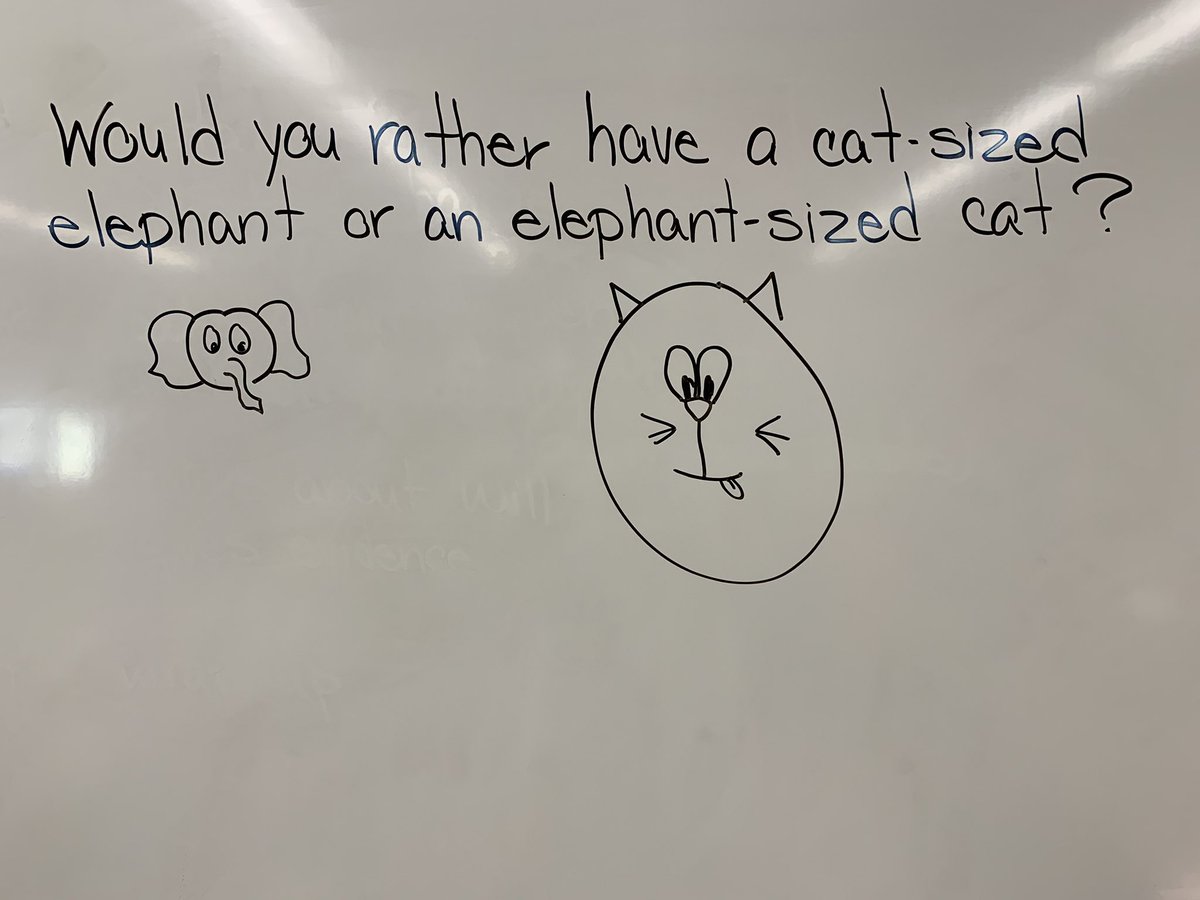 Would you rather have a cat-sized
elephant or an elephant-sized cat?